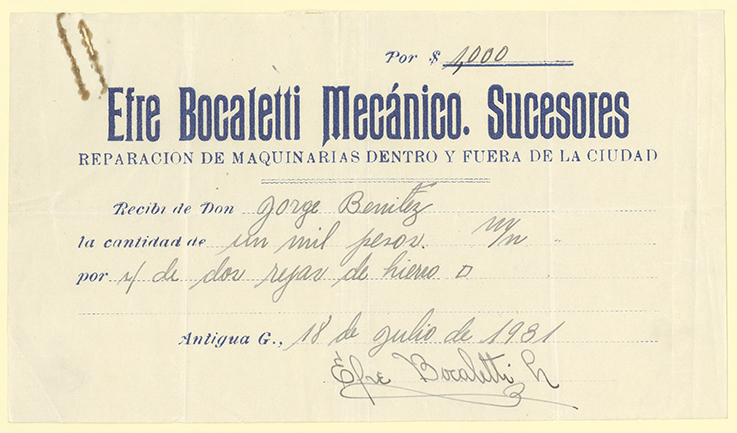 Por $ 1,000
Efre Bocaletti Mecánico. Sucesores
REPARACION DE MAQUINARIAS DENTRO Y FUERA DE LA CIUDAD
Recibi de Don Jorge Benitez
la cantidad de un mil pesos. m/n "
por v/ de dos rejas de hierro
Antigua G., 18 de julio de 1931
Efre Bocaletti h